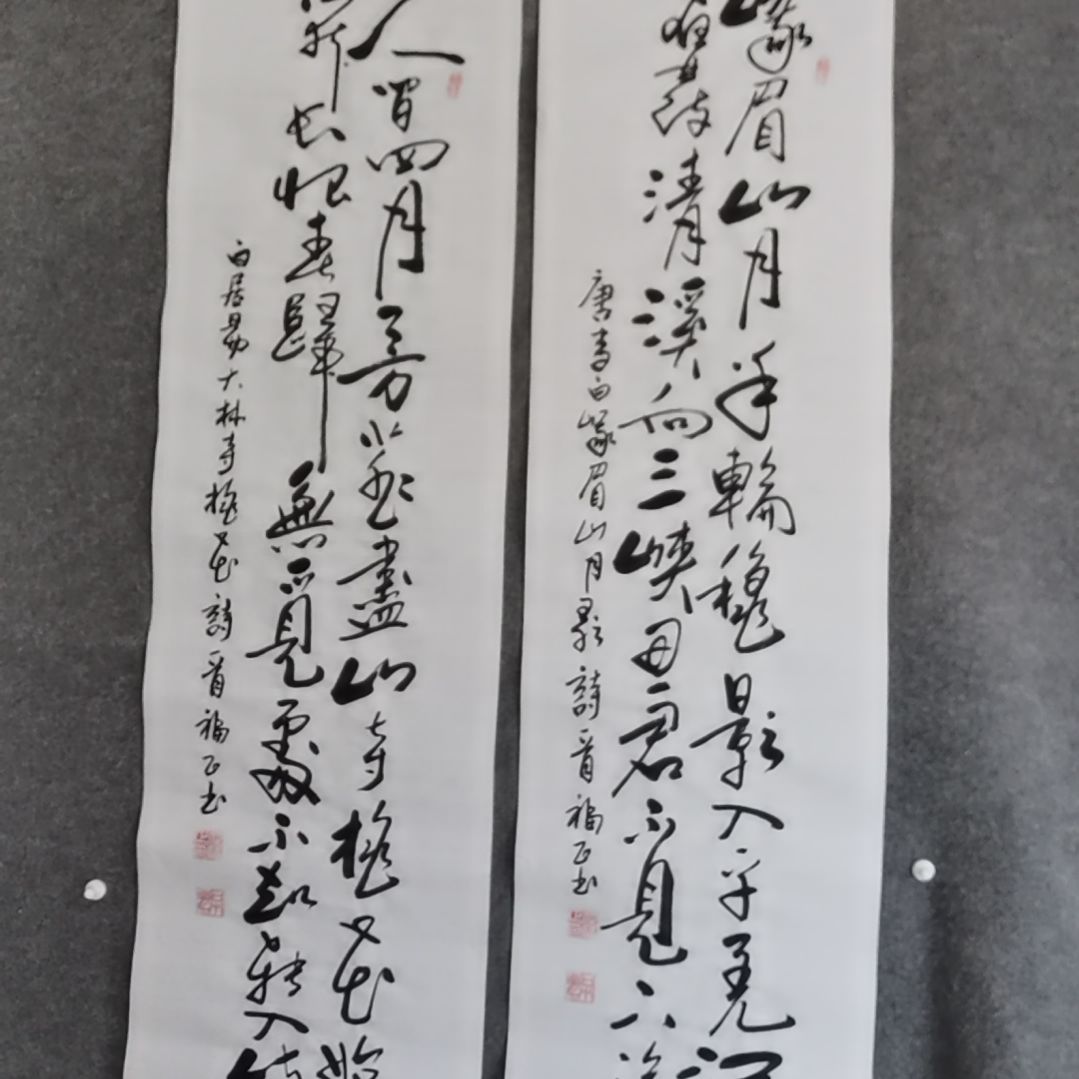 峨眉山月半輪秋影入平羌江
發清溪向三峽思君不見下渝
唐李白峨眉山月歌詩一首福正书
人間四月芳菲盡山寺桃花始
開長恨春歸無覓處不知轉入此
白居易大林寺桃花詩一首福正书